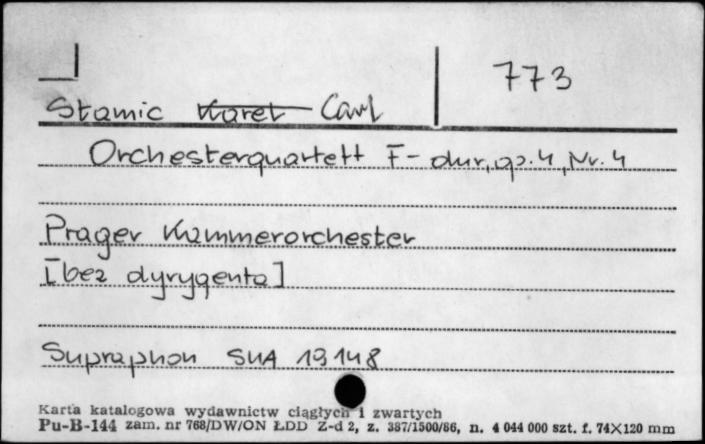 773
Stamic Karel Carl
Orchesterquartett F-dur, op. 4, Nr. 4
Prager Kammerorchester
[bez dyrygenta]
Supraphon SUA 19148
Karta katalogowa wydawnictw ciągłych i zwartych
Pu-B-144 zam. nr 768/DW/ON ŁDD Z-d 2, z. 387/1500/86, n. 4 044 000 szt. f. 74X120 mm